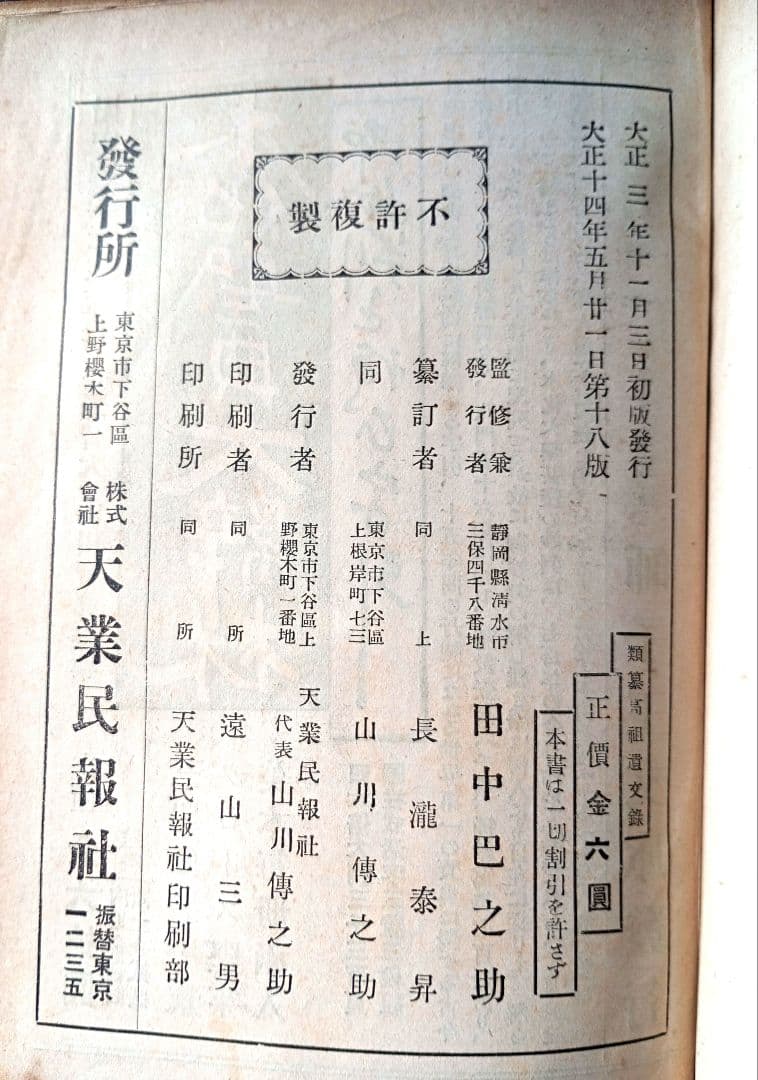 大正三年十一月三日初版發行
大正十四年五月廿一日第十八版
類纂高祖遺文錄
正價金六圓
本書は一切割引を許さず
不許複製
監修兼
發行者
靜岡縣淸水市
三保四千八番地
田中巴之助
纂訂者
同上
長瀧泰昇
同
東京市下谷區
上根岸町七三
山川傳之助
發行者
東京市下谷區上
野櫻木町一番地
天業民報社
代表山川傳之助
印刷者
同所
遠山三男
印刷所
同所
天業民報社印刷部
發行所
東京市下谷區
上野櫻木町一
株式
會社
天業民報社
振替東京
一二三五